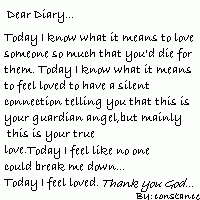 Dear Diary...
Today I know what it means to love
someone so much that you'd die for
them. Today I know what it means
to feel loved to have a silent
connection telling you that this is
your guardian angel,but mainly
this is your true
love.Today I feel like no one
could break me down...
Today I feel loved. Thank you God...
By:constance